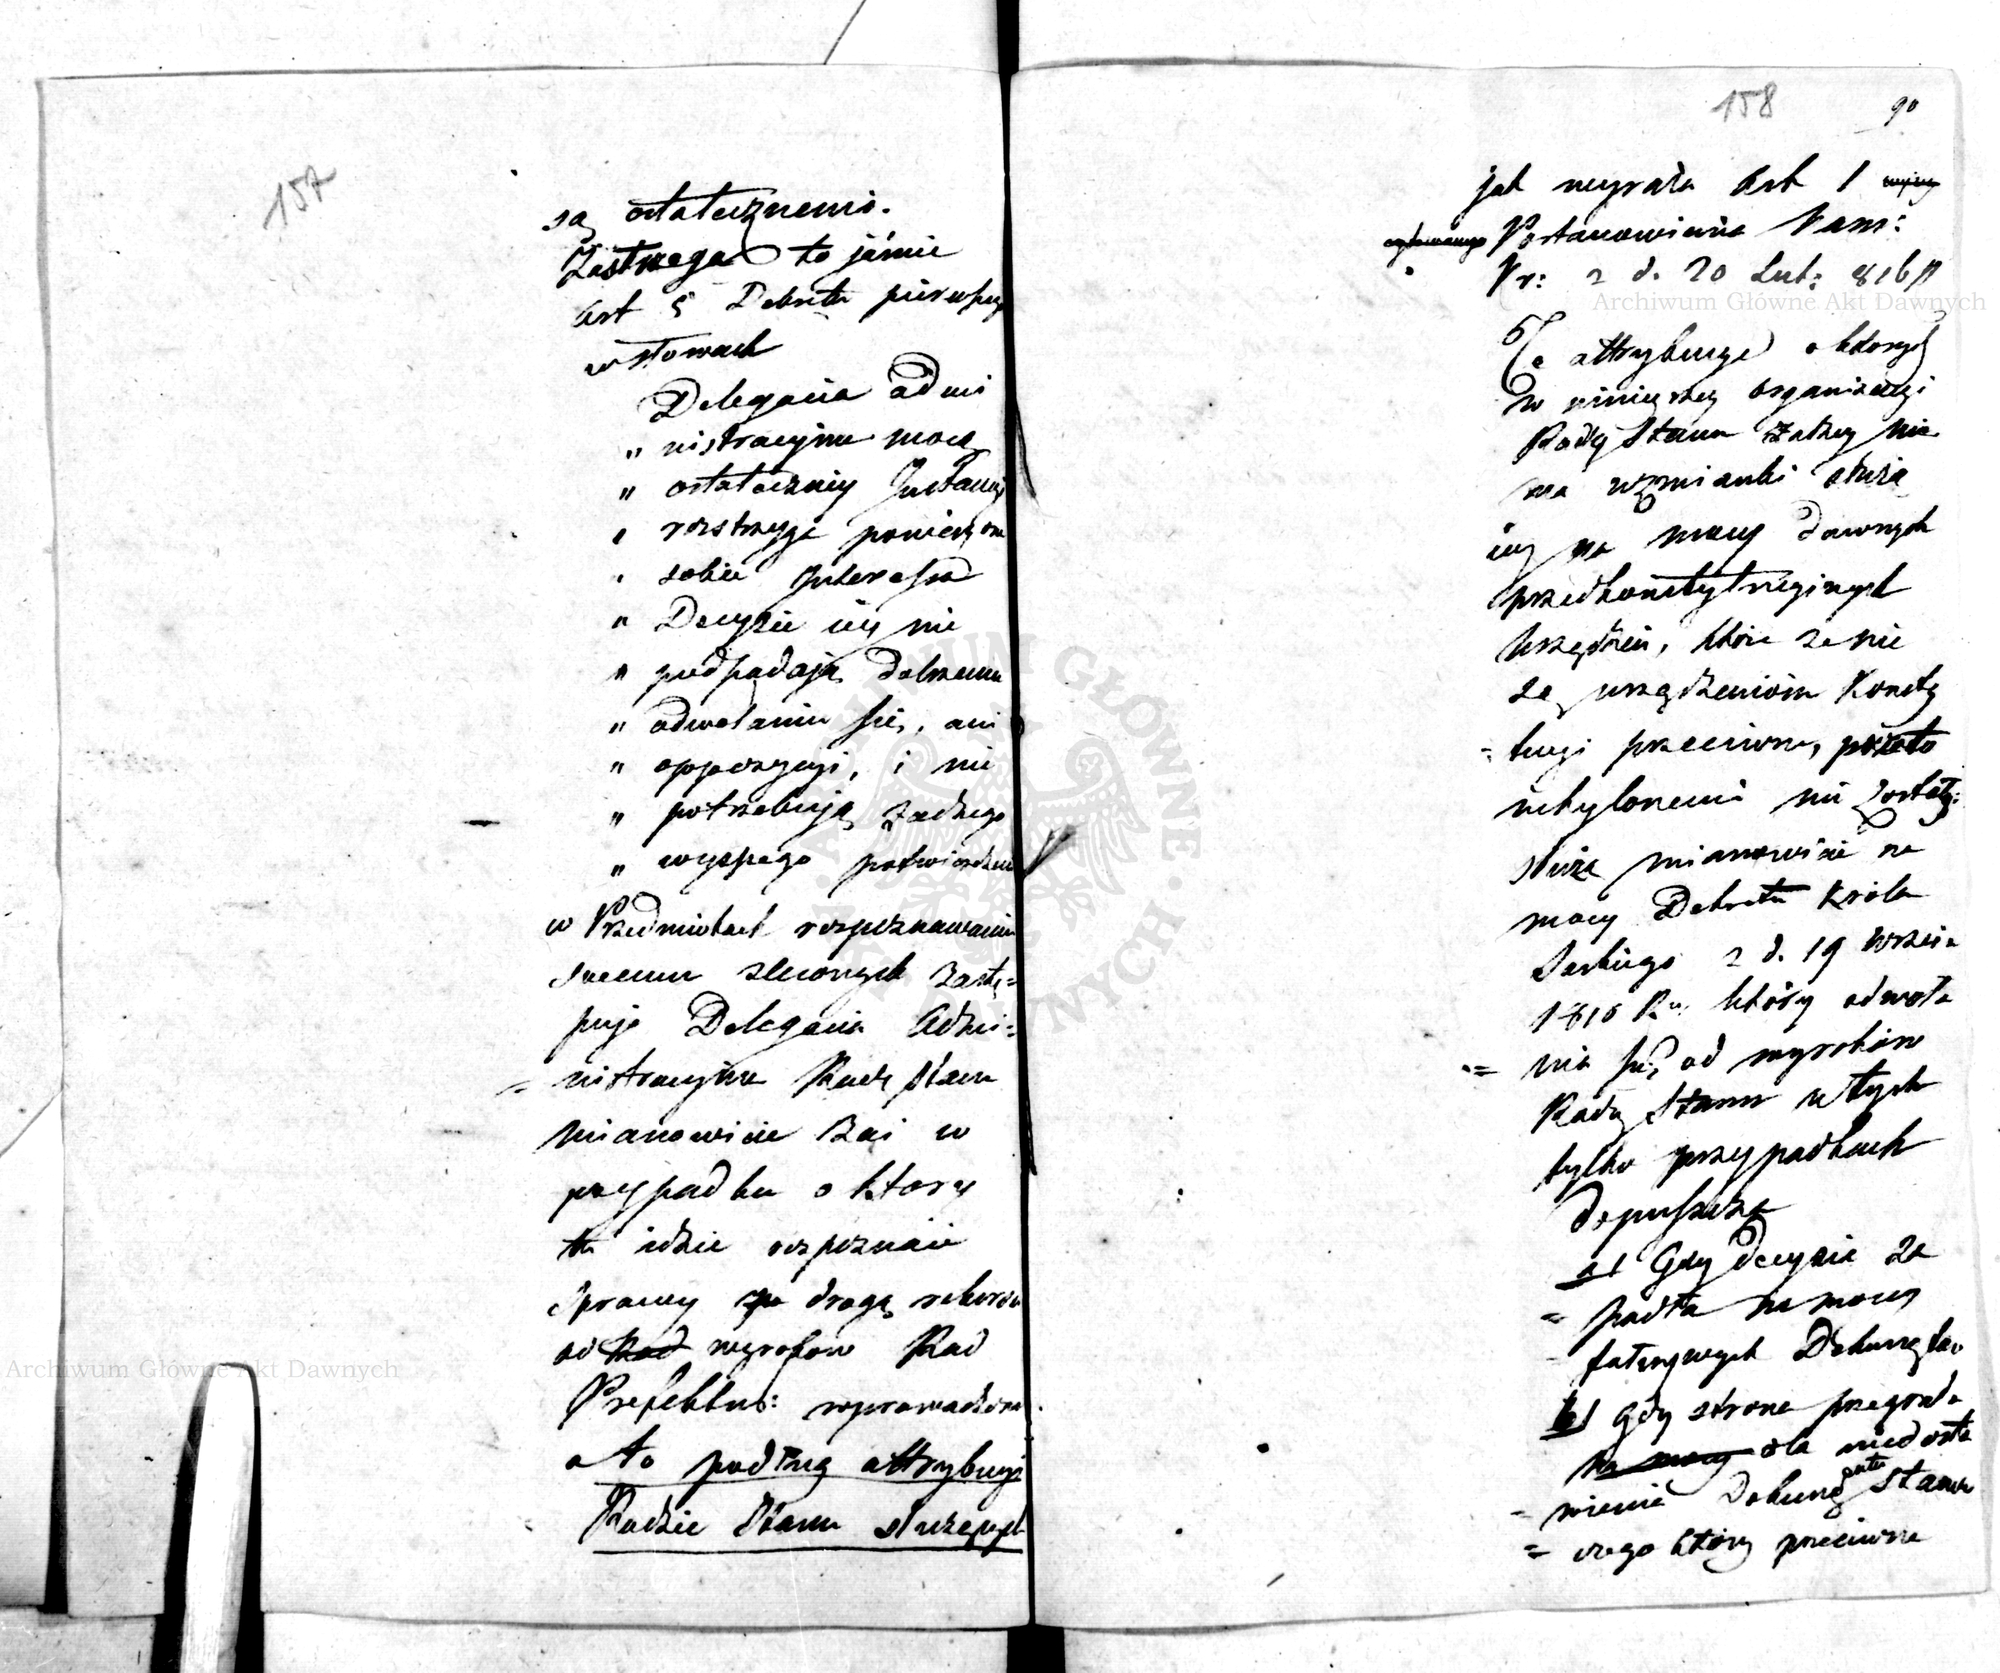 157
są ostatecznemi.
Zastrzega to jaśnie
Art 5 Dekretu pierwszego
w słowach
Delegacia admi
„ nistracyjna mocą
„ ostateczney Instancyi
„ rozstrzyga poruczone
„ sobie Interessa
„ Decyzie iey nie
„ podpadają dalszemu
„ odwołaniu się, ani
„ oppozycyi, i nie
„ potrzebują żadnego
„ wyższego potwierdzenia
w Przedmiotach rozpoznawaniu
swemu zleconych zastę=
puje Delegacia Admi=
= nistracyjna Radę stanu
mianowicie zaś w
przypadku o którym
tu idzie rozpoznaie
sprawy drogą rekursu
od Rad wyroków Rad
Prefektur: wprowadzone.
a to podług attrybucyi
Radzie Stanu służących
158
90
jak wyraża Art 1
Postanowienia Nam:
Nr: z d. 20 Lut: 816 r
5/ Te attrybucye o których
w ninieyszey organizacyi
Rady Stanu żadney nie
ma wzmianki służą
iey na mocy dawnych
przedkonstytucyinych
urządzeń, które że nie
są urządzeniom Konsty
= tucyi przeciwne, przeto
uchylonemi nie zostały:
służą mianowicie na
mocy Dekretu Króla
Saskiego z d. 19 Wrześ:
1810 Ru który odwoła
= nia się od wyroków
Rady Stanu w tych
tylko przypadkach
dopuszcza
a/ Gdy decyzia za
= padła na mocy
fałszywych Dokumentów
b/ Gdy strona przegrała
na mocy dla niedosta
= wienia Dokumentu Stanow
= czego który przeciwna
Archiwum Główne Akt Dawnych
Archiwum Główne Akt Dawnych